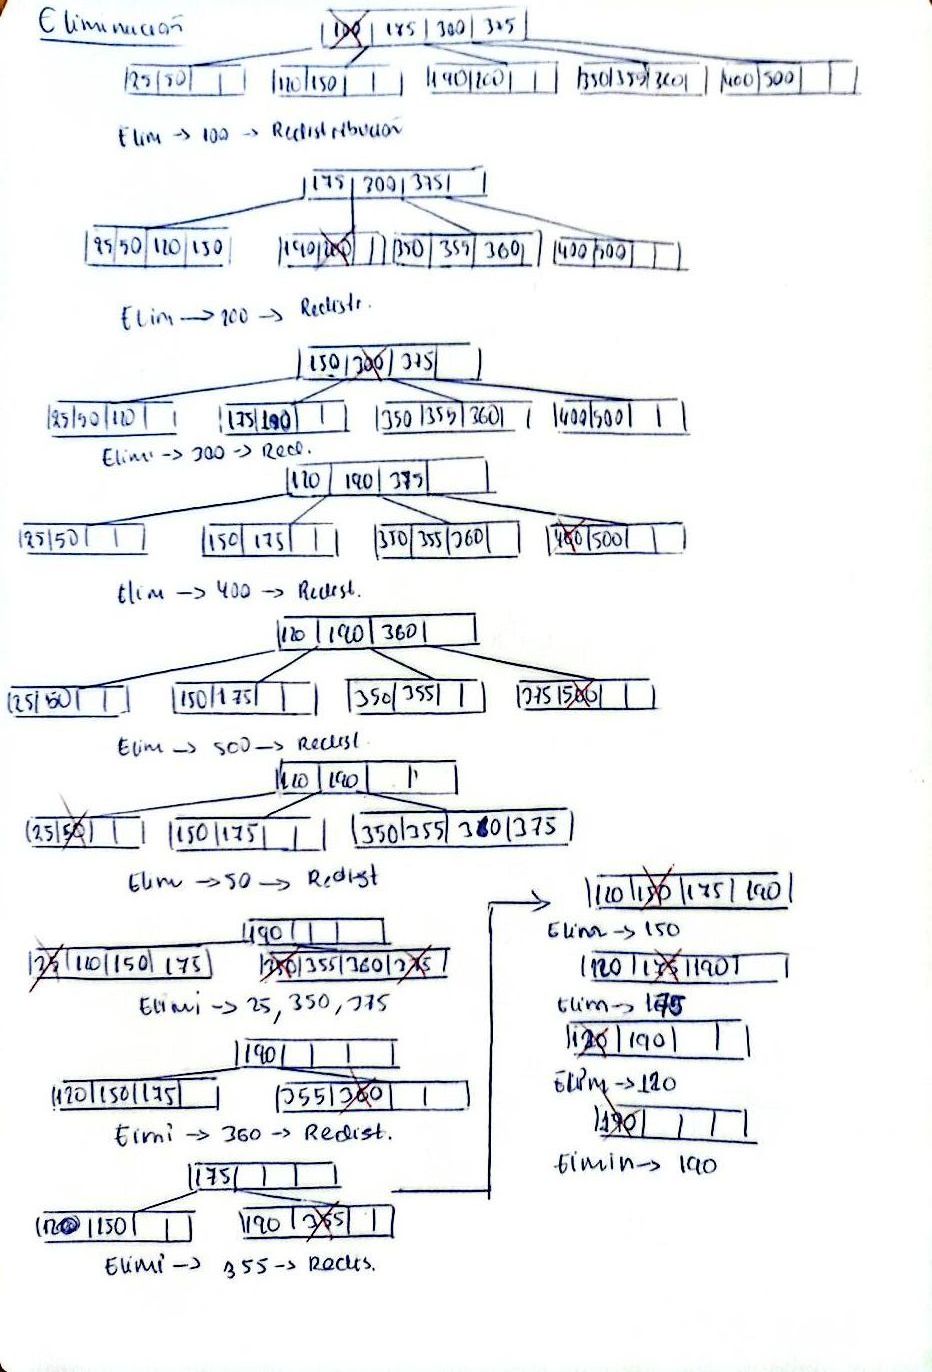 Eliminación
|100|175|300|375|
|25|50| | | |120|150| | | |190|200| | | |350|355|360| |400|500| | |
Elim -> 100 -> Redistribución
|175|300|375| |
|25|50|120|150| |190|200| | | |350|355|360| |400|500| | |
Elim -> 200 -> Redistr.
|150|300|375| |
|25|50|120| | |175|190| | | |350|355|360| | |400|500| | |
Elimi -> 300 -> Red.
|120|190|375| |
|25|50| | | |150|175| | | |350|355|360| | |400|500| | |
Elim -> 400 -> Redist.
|120|190|360| |
|25|50| | | |150|175| | | |350|355| | | |375|500| | |
Elim -> 500 -> Redist.
|120|190| | |
|25|50| | | |150|175| | | |350|355|360|375|
Elim -> 50 -> Redist
|190| | | |
|25|120|150|175| |350|355|360|375|
Elimi -> 25, 350, 375
|190| | | |
|120|150|175| | |355|360| | |
Eimi -> 360 -> Redist.
|175| | | |
|120|150| | | |190|355| | |
Elimi -> 355 -> Redis.
|120|150|175|190|
Elimn -> 150
|120|175|190| |
Elim -> 175
|120|190| | |
Elim -> 120
|190| | | |
Eimin -> 190